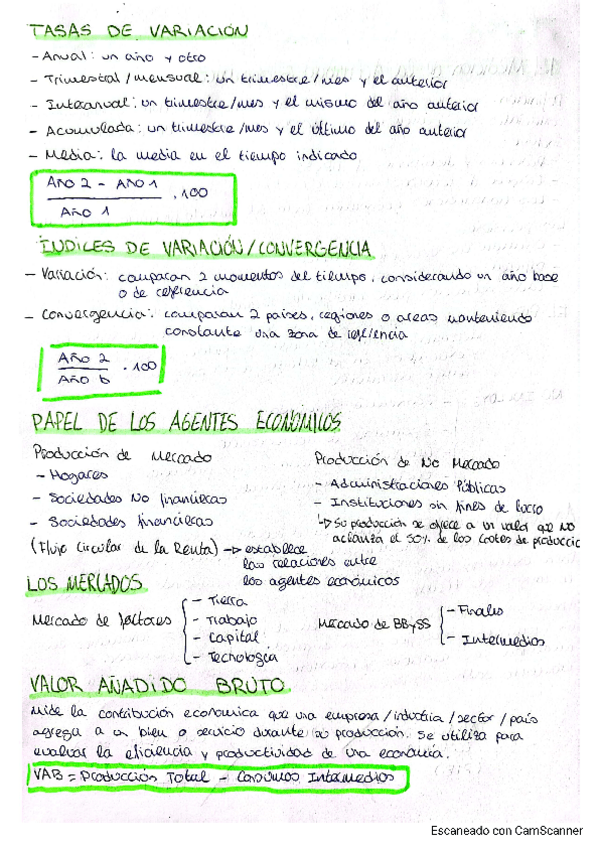 TASAS DE VARIACIÓN
- Anual: un año y otro
- Trimestral/mensual: un trimestre/mes y el anterior
- Interanual: un trimestre/mes y el mismo del año anterior
- Acumulada: un trimestre/mes y el último del año anterior
- Media: la media en el tiempo indicado
Año 2 - Año 1
Año 1
· 100
ÍNDICES DE VARIACIÓN/CONVERGENCIA
- Variación: comparan 2 momentos del tiempo, considerando un año base
o de referencia
- Convergencia: comparan 2 países, regiones o areas manteniendo
constante una zona de
Año 2
Año b
· 100
PAPEL DE LOS AGENTES ECONÓMICOS
Producción de Mercado
- Hogares
- Sociedades No financieras
- Sociedades financieras
(Flujo Circular de la Renta) -> establece
las relaciones entre
los agentes económicos
Producción de No Mercado
- Administraciones Públicas
- Instituciones sin fines de lucro
↳ Su producción se ofrece a un valor que NO
el 50% de los costes de producció
LOS MERCADOS
Mercado de factores
- Tierra
- Trabajo
- Capital
- Tecnología
Mercado de BBySS
- Finales
- Intermedios
VALOR AÑADIDO BRUTO
Mide la contribución economica que una empresa/industria/sector/país
agrega a un bien o servicio durante su producción. Se utiliza para
evaluar la eficiencia y productividad de una economía.
VAB = Producción Total - Consumos Intermedios
Escaneado con CamScanner